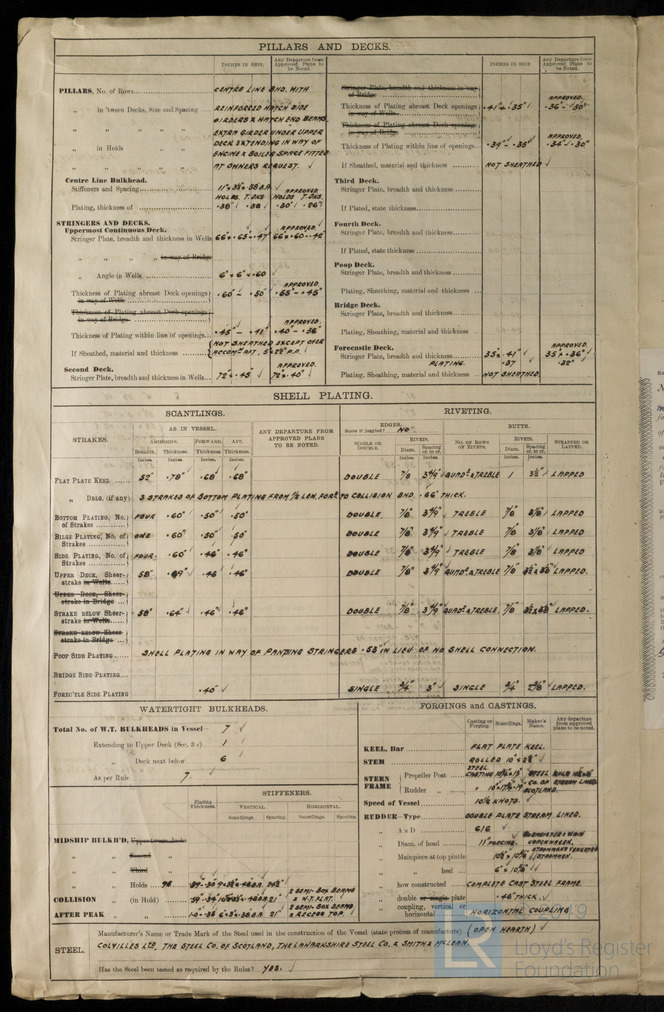 PILLARS AND DECKS.
INCHES IN SHIP.
Any Departure from Approved Plans to be Noted.
PILLARS, No. of Rows
CENTRE LINE BHD. WITH
„ in 'tween Decks, Size and Spacing
REINFORCED HATCH SIDE
GIRDERS & HATCH END BEAMS.
EXTRA GIRDER UNDER UPPER
„ in Holds
DECK EXTENDING IN WAY OF
ENGINE & BOILER SPACE FITTED
AT OWNERS REQUEST.
Centre Line Bulkhead.
Stiffeners and Spacing
APPROVED
HOLDS T.DKS HOLDS T.DKS
Plating, thickness of
.38" .38 .30" .26"
STRINGERS AND DECKS.
Uppermost Continuous Deck.
APPROVED.
Stringer Plate, breadth and thickness in Wells
„ „ „ in way of Bridge
„ Angle in Wells
6" x 6" x .60
APPROVED.
Thickness of Plating abreast Deck openings in way of Wells
.60" - .50" .55" - .45"
Thickness of Plating abreast Deck openings in way of Bridge
APPROVED.
Thickness of Plating within line of openings
.45" - .42" .40" - .36"
If Sheathed, material and thickness
NOT SHEATHED EXCEPT OVER
Second Deck.
APPROVED.
Stringer Plate, breadth and thickness in Wells
72" x .45" 72" x .40"
INCHES IN SHIP
Any Departure from Approved Plans to be Noted.
Stringer Plate, breadth and thickness in way of Bridge
APPROVED.
Thickness of Plating abreast Deck openings in way of Wells
.41" - .35" .36" - .30"
Thickness of Plating abreast Deck openings in way of Bridge
APPROVED.
Thickness of Plating within line of openings
.39" - .35" .34" - .30"
If Sheathed, material and thickness
NOT SHEATHED
Third Deck.
Stringer Plate, breadth and thickness
If Plated, state thickness
Fourth Deck.
Stringer Plate, breadth and thickness
If Plated, state thickness
Poop Deck.
Stringer Plate, breadth and thickness
Plating, Sheathing, material and thickness
Bridge Deck.
Stringer Plate, breadth and thickness
Plating, Sheathing, material and thickness
Forecastle Deck.
APPROVED.
Stringer Plate, breadth and thickness
35" x .41" 35" x .36"
PLATING. .37 .32"
Plating, Sheathing, material and thickness
NOT SHEATHED.
SHELL PLATING.
SCANTLINGS.
RIVETING.
STRAKES.
AS IN VESSEL.
AMIDSHIPS. FORWARD. AFT.
Breadth. Thickness. Thickness. Thickness.
Inches Inches Inches Inches
ANY DEPARTURE FROM APPROVED PLANS TO BE NOTED.
EDGES. NO
State if joggled?
SINGLE OR DOUBLE.
RIVETS.
Diam. Spacing cr. to cr.
BUTTS.
NO. OF ROWS OF RIVETS.
RIVETS.
Diam. Spacing cr. to cr.
STRAPPED OR LAPPED.
FLAT PLATE KEEL 52" .78" .68" .68" DOUBLE 7/8 LAPPED
„ DBLG. (if any) 3 STRAKES OF BOTTOM PLATING FROM 1/5 LEN. FORE TO COLLISION BHD. .66" THICK.
BOTTOM PLATING, No. of Strakes FOUR .60" .50" .50" DOUBLE. 7/8" TREBLE 7/8" LAPPED.
BILGE PLATING, No. of Strakes ONE .60" .50" .50" DOUBLE. 7/8" TREBLE 7/8" LAPPED.
SIDE PLATING, No. of Strakes FOUR. .60" .46" .46" DOUBLE. 7/8" TREBLE 7/8" LAPPED.
UPPER DECK, Sheerstrake in Wells 58" .46" .46" DOUBLE. 7/8" LAPPED.
UPPER DECK, Sheerstrake in Bridge
STRAKE BELOW Sheerstrake in Wells 58" .64" .46" .46" DOUBLE. 7/8" LAPPED.
STRAKE BELOW Sheerstrake in Bridge
POOP SIDE PLATING
SHELL PLATING IN WAY OF PANTING STRINGERS .58 IN LIEU OF NO SHELL CONNECTION.
BRIDGE SIDE PLATING
FOREC'TLE SIDE PLATING .40" SINGLE 3/4" 3" SINGLE 3/4" LAPPED.
WATERTIGHT BULKHEADS.
Total No. of W.T. BULKHEADS in Vessel 7
Extending to Upper Deck (Sec. 3 c) 1
„ Deck next below 6
As per Rule 7.
Plating Thickness.
STIFFENERS.
VERTICAL. HORIZONTAL.
Scantlings. Spacing. Scantlings. Spacing.
MIDSHIP BULKH'D, Upper tween decks
„ „ Second „
„ „ Third „
„ „ Holds
COLLISION „ (in Hold)
2 SEMI-BOX BEAMS
& W.T. FLAT.
AFTER PEAK „
2 SEMI-BOX BEAMS
& RECESS TOP.
FORGINGS and CASTINGS.
Casting or Forging. Scantlings. Maker's Name. Any departure from approved plans to be noted.
KEEL, Bar FLAT PLATE KEEL.
STEM ROLLED
STERN FRAME
Propeller Post STEEL CASTING
Rudder „
Speed of Vessel 10½ KNOTS.
RUDDER—Type DOUBLE PLATE STREAM LINED.
„ A x D 616
BURMEISTER & WAIN
COPENHAGEN.
„ Diam. of head 11" FORGING.
„ Mainpiece at top pintle
„ „ heel
„ how constructed COMPLETE CAST STEEL FRAME.
„ double or single plate .46" THICK.
„ coupling, vertical or horizontal HORIZONTAL COUPLING
STEEL.
Manufacturer's Name or Trade Mark of the Steel used in the construction of the Vessel (state process of manufacture) (OPEN HEARTH)
COLVILLES LTD, THE STEEL CO. OF SCOTLAND, THE LANARKSHIRE STEEL CO. & SMITH & McLEAN.
Has the Steel been tested as required by the Rules? YES.
2019
LR
Lloyd's Register
Foundation